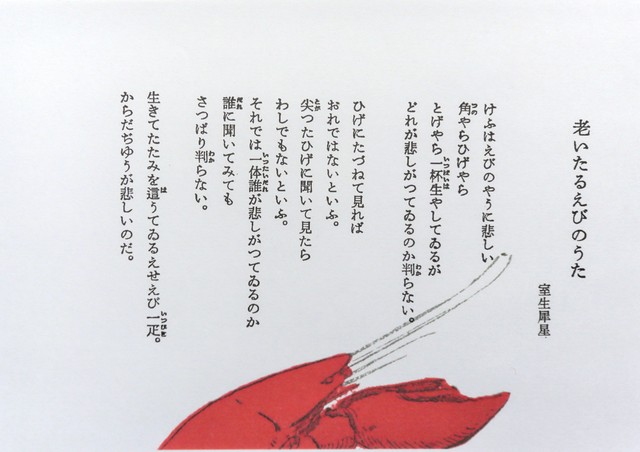 老いたるえびのうた
室生犀星
けふはえびのやうに悲しい
角やらひげやら
とげやら一杯生やしてゐるが
どれが悲しがつてゐるのか判らない。
ひげにたづねて見れば
おれではないといふ。
尖つたひげに聞いて見たら
わしでもないといふ。
それでは一体誰が悲しがつてゐるのか
誰に聞いてみても
さつぱり判らない。
生きてたたみを這うてゐるえせえび一疋。
からだぢゆうが悲しいのだ。